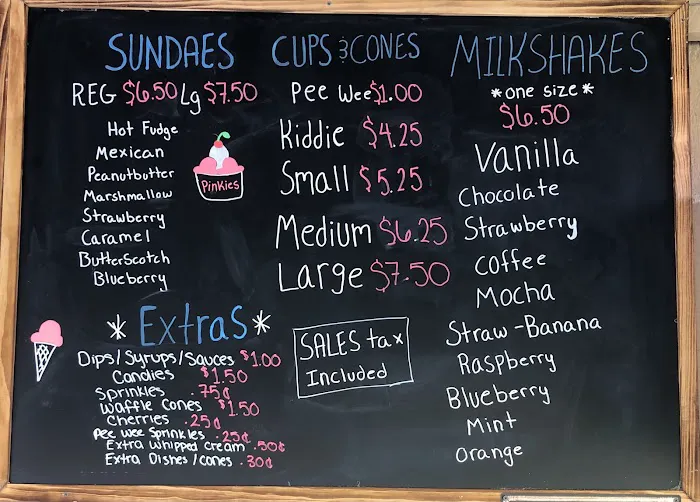 SUNDAES
REG $6.50 Lg $7.50
Hot Fudge
Mexican
Peanutbutter
Marshmallow
Strawberry
Caramel
ButterScotch
Blueberry
Pinkies
*Extras*
Dips/Syrups/Sauces $1.00
Candies $1.50
Sprinkles .75¢
Waffle Cones $1.50
Cherries .25¢
Pee wee Sprinkles .25¢
Extra whipped cream .50¢
Extra Dishes/Cones .30¢
CUPS & CONES
Pee Wee $1.00
Kiddie $4.25
Small $5.25
Medium $6.25
Large $7.50
SALES tax
Included
MILKSHAKES
*one size*
$6.50
Vanilla
Chocolate
Strawberry
Coffee
Mocha
Straw-Banana
Raspberry
Blueberry
Mint
Orange